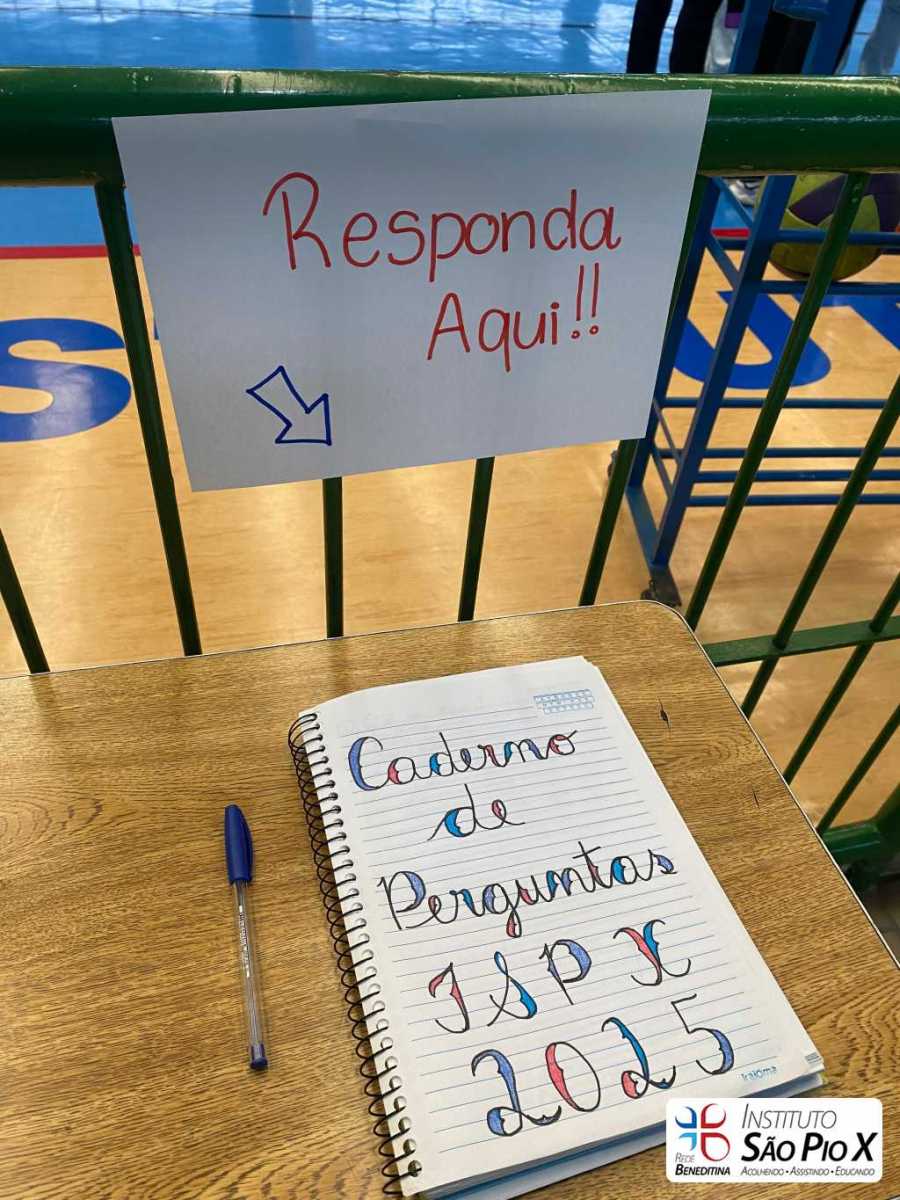 Responda
Aqui!!
Caderno
de
Perguntas
ISP X
2025
INSTITUTO
SÃO PIO X
REDE
BENEDITINA
ACOLHENDO • ASSISTINDO • EDUCANDO